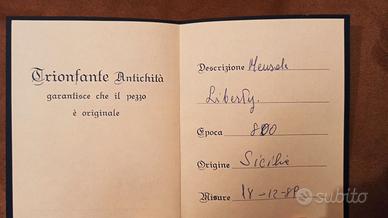 Trionfante Antichità
garantisce che il pezzo
è originale
Descrizione Mensole
Liberty.
Epoca 800
Origine Sicilia
Misure 18-12-89
subito